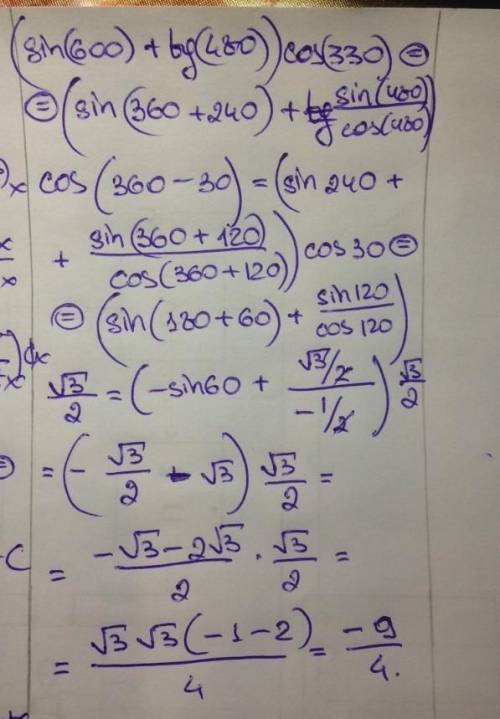 (sin(600) + tg(480)) cos(330) ⊜
⊜ (sin(360 + 240) + sin(480)/cos(480))
x cos(360 − 30) = (sin 240 +
+ sin(360 + 120)/cos(360 + 120)) cos 30 ⊜
⊜ (sin(180 + 60) + sin 120/cos 120)
√3/2 = (−sin 60 + (√3/2)/(−1/2)) √3/2
= (− √3/2 − √3) √3/2 =
= (−√3 − 2√3)/2 · √3/2 =
= √3 √3 (−1 − 2)/4 = −9/4.